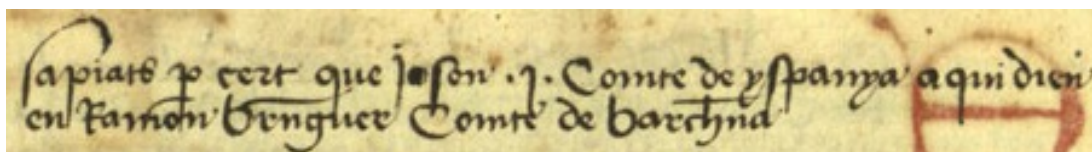 sapiats p cert que jo son .j. Comte de yspanya a qui dien
en Ramon brnguer Comte de barchna